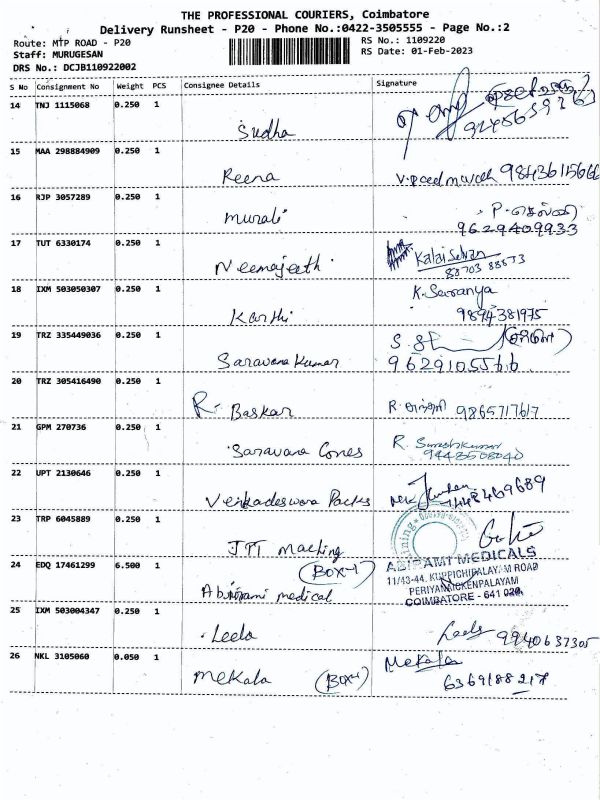 THE PROFESSIONAL COURIERS, Coimbatore
Delivery Runsheet - P20 - Phone No.:0422-3505555 - Page No.:2
Route: MTP ROAD - P20
Staff: MURUGESAN
DRS No.: DCJB110922002
RS No.: 1109220
RS Date: 01-Feb-2023
S No Consignment No Weight PCS Consignee Details Signature
14 TNJ 1115068 0.250 1
Sudha
15 MAA 298884909 0.250 1
Reena
16 RJP 3057289 0.250 1
murali
9629409933
17 TUT 6330174 0.250 1
Kalai Selvan
88703 88573
18 IXM 503050307 0.250 1
Karthi K. Saranya
9894381975
19 TRZ 335449036 0.250 1
Saravana Kumar 9629105566
20 TRZ 305416490 0.250 1
R. Baskar 9865717617
21 GPM 270736 0.250 1
Saravana Cones R. Sureshkumar
9448508040
22 UPT 2130646 0.250 1
Venkadeswara Packs
23 TRP 6045889 0.250 1
24 EDQ 17461299 6.500 1
Abirami medical
ABIRAMI MEDICALS
11/43-44, KUPPICHIPALAYAM ROAD
PERIYANAICKENPALAYAM
COIMBATORE - 641 020.
25 IXM 503004347 0.250 1
Leela Leela 9940637305
26 NKL 3105060 0.050 1
Mekala Mekala
6369188217